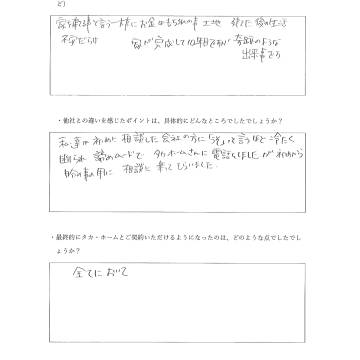 ど)
家を建てると言う一様にお金はもちろんの事 土地 建てた後の生活
不安だらけ 家が完成して 奇跡のような
出来事です
・他社との違いを感じたポイントは、具体的にどんなところでしたでしょうか?
私達が初めに相談した会社の方には 言うほど冷たく
断られ 諦めムードで タカ・ホームさんに電話をしましたが 初めから
相談に乗ってもらいました。
・最終的にタカ・ホームとご契約いただけるようになったのは、どのような点でしたでし
ょうか?
全てにおいて